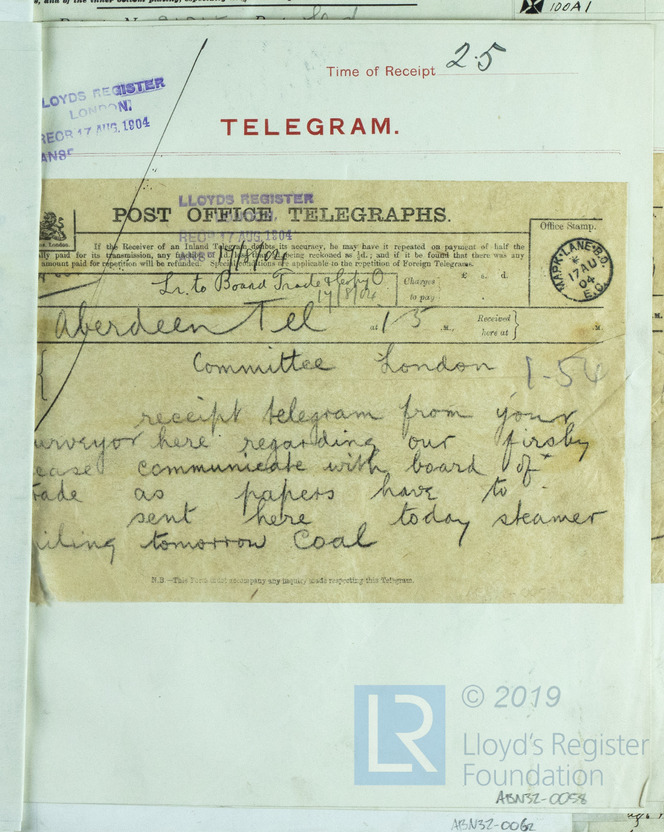 100A1
Time of Receipt 2.5
TELEGRAM.
LOYDS REGISTER
LONDON.
17 AUG. 1904
LLOYDS REGISTER
17 AUG. 1904
POST OFFICE TELEGRAPHS.
If the Receiver of an Inland Telegram doubts its accuracy, he may have it repeated on payment of half the
paid for its transmission, any being reckoned as 1d.; and if it be found that there was any
amount paid for repetition will be refunded. Special are applicable to the repetition of Foreign Telegrams.
Office Stamp.
MARK-LANE-B.O.
17 AU
04
E.C.
17/8/04
Lr. to Board Trade &
17/8/04
Charges
to pay
£ s. d.
Aberdeen Tel
at 1 5 .M.,
Received
here at
.M.
Committee London
1-54
receipt telegram from your
urveyor here regarding our firsby
ease communicate with board of
rade as papers have to
sent here today steamer
iling tomorrow Coal
N.B.—This Form must accompany any inquiry made respecting this Telegram.
LR
© 2019
Lloyd's Register
Foundation
ABN32-0058
ABN32-0062